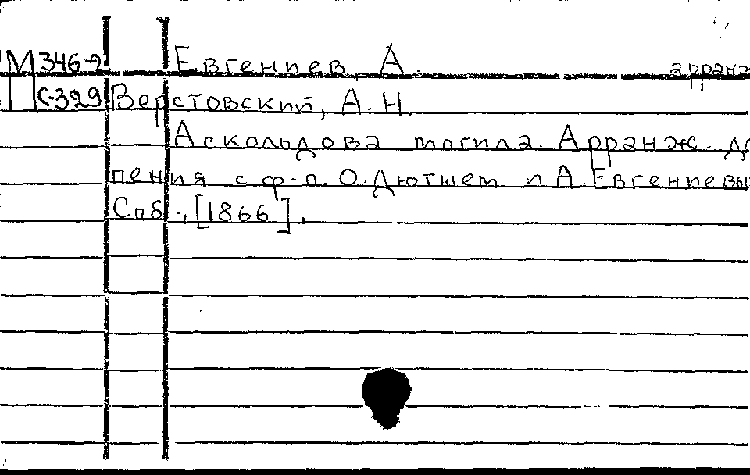 М 346-2 Евгеньев, А. арранж
С-329 Верстовский, А. Н.
Аскольдова могила. Арранж. д
пения с ф-п. О. Дютшем и А. Евгеньевы
Спб., [1866].